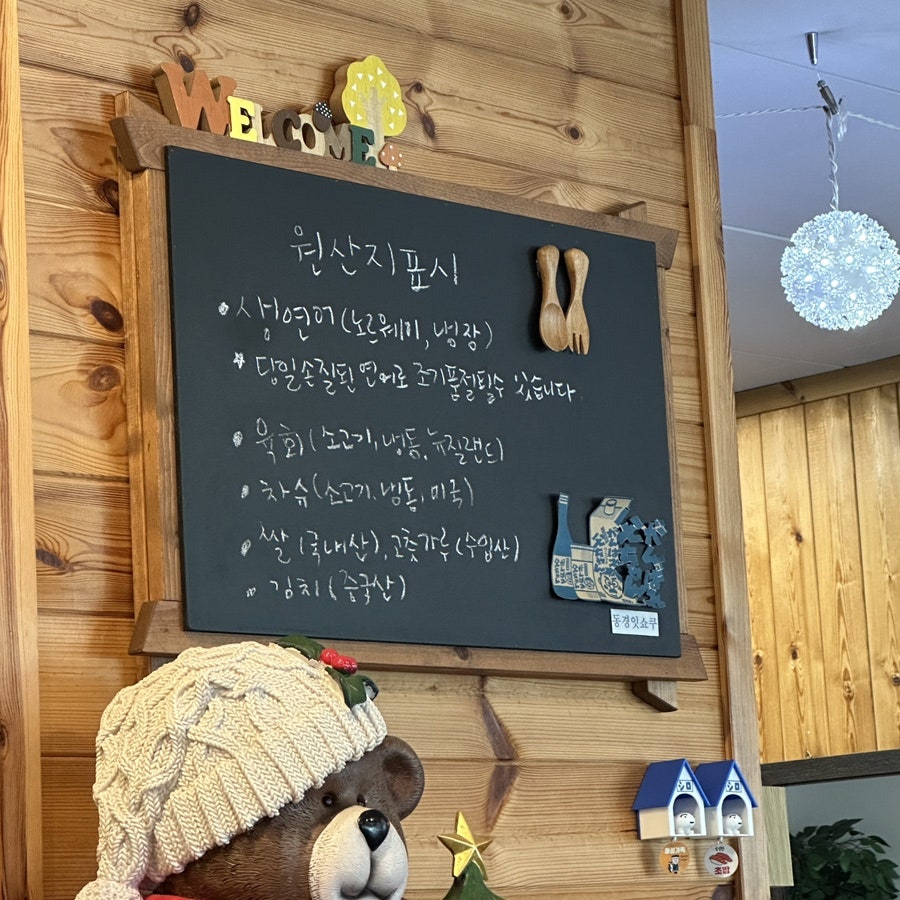 WELCOME
원산지표시
• 생연어 (노르웨이, 냉장)
* 당일손질된 연어로 조기품절될수 있습니다.
• 육회 (소고기, 냉동, 뉴질랜드)
• 차슈 (소고기, 냉동, 미국)
• 쌀 (국내산), 고춧가루 (수입산)
• 김치 (중국산)
동경잇쇼쿠
초밥